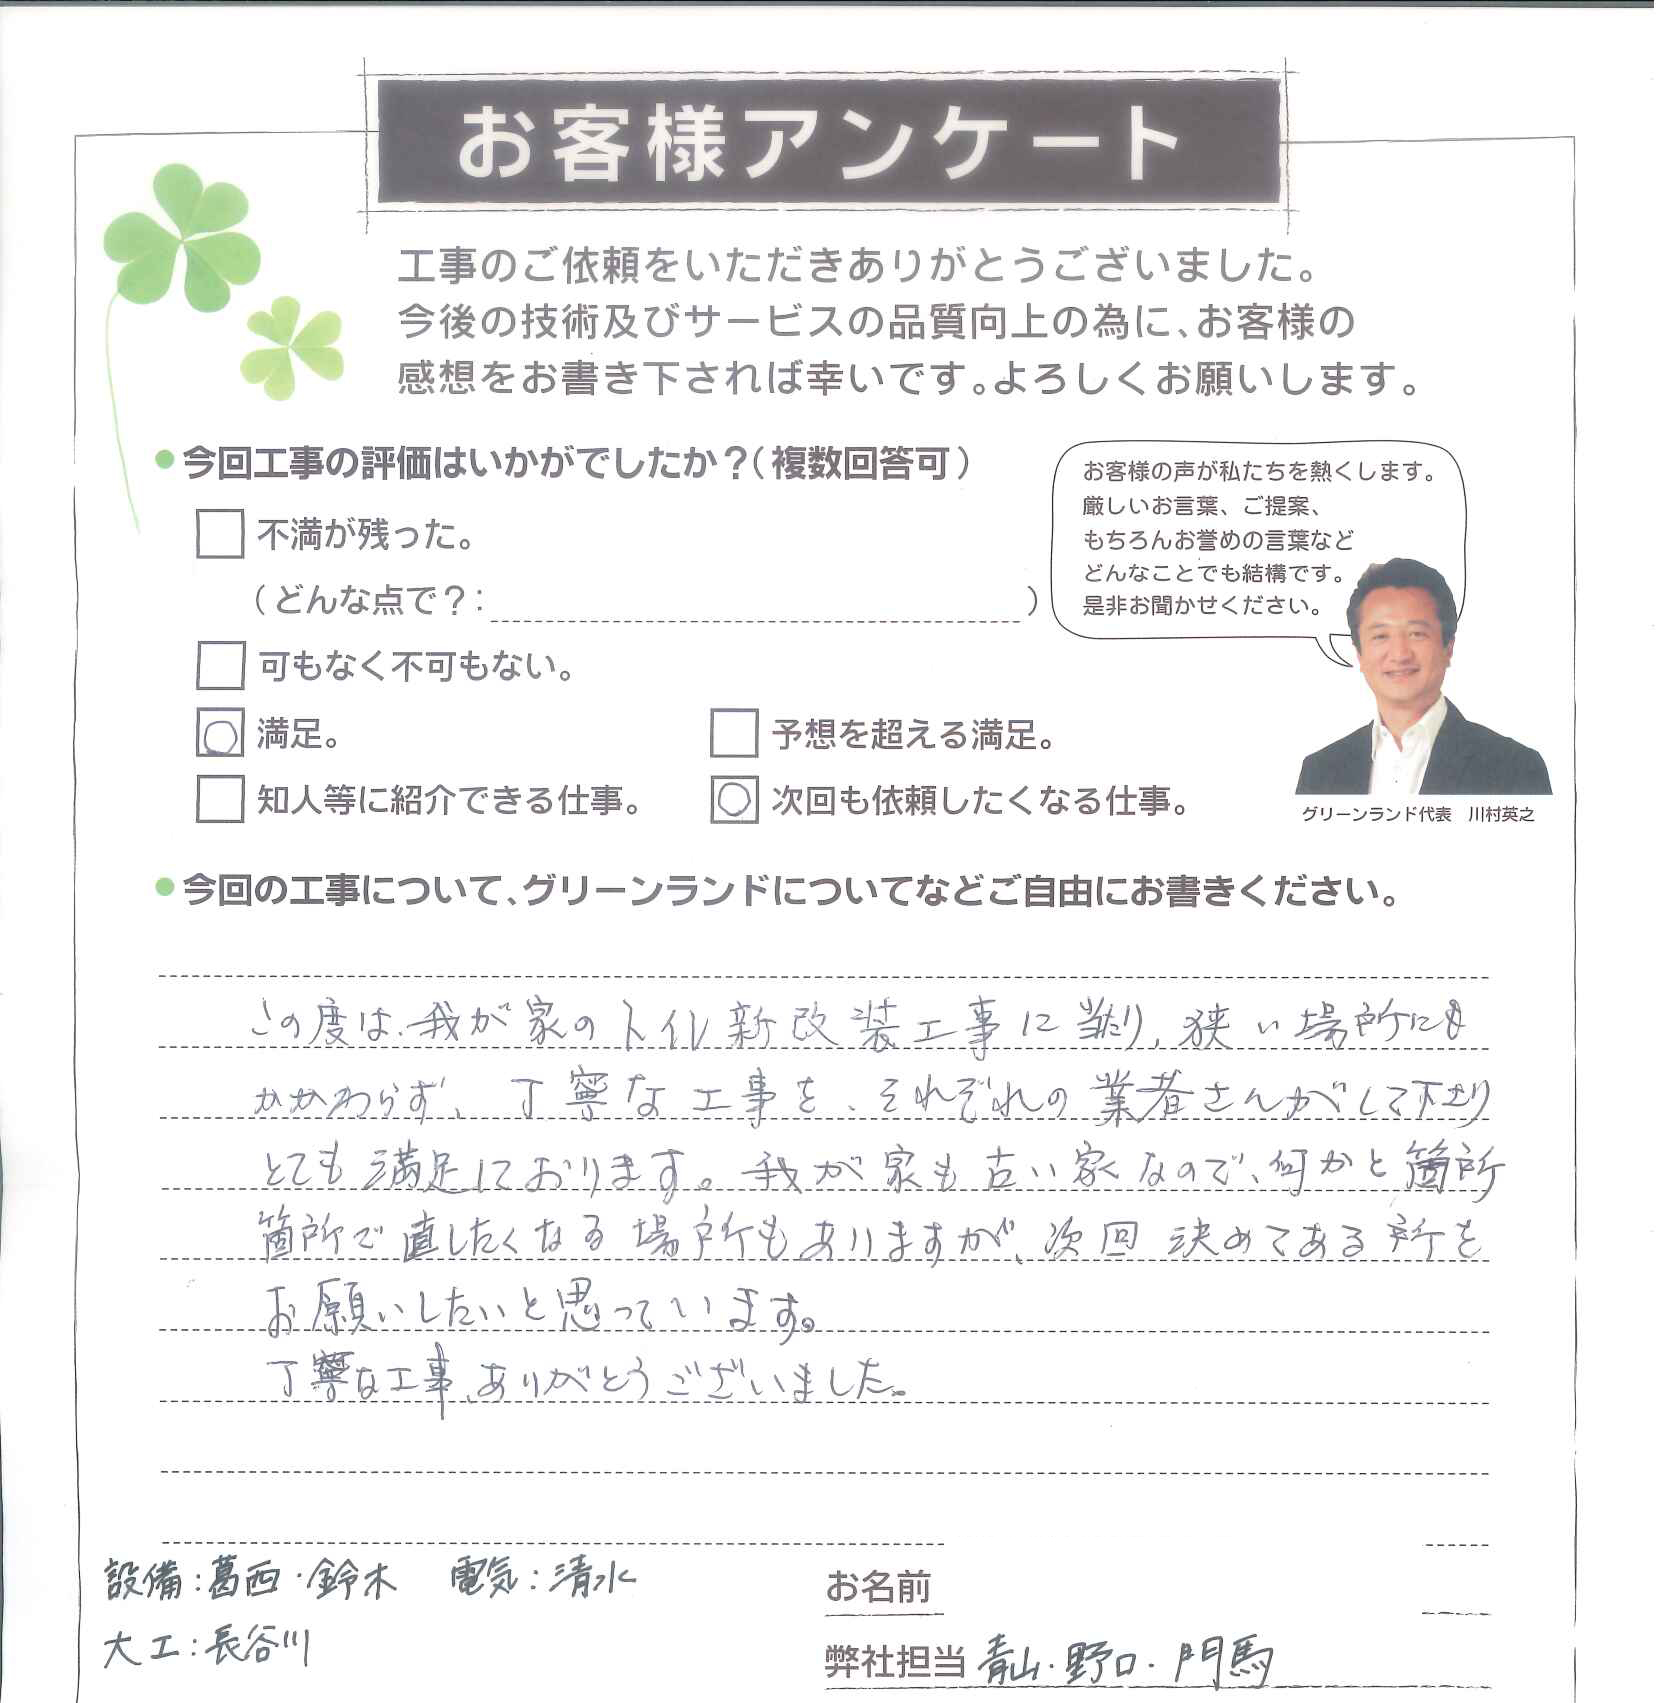 お客様アンケート
工事のご依頼をいただきありがとうございました。
今後の技術及びサービスの品質向上の為に、お客様の
感想をお書き下されば幸いです。よろしくお願いします。
●今回工事の評価はいかがでしたか？（複数回答可）
不満が残った。
（どんな点で？： ）
可もなく不可もない。
満足。
予想を超える満足。
知人等に紹介できる仕事。
次回も依頼したくなる仕事。
お客様の声が私たちを熱くします。
厳しいお言葉、ご提案、
もちろんお誉めの言葉など
どんなことでも結構です。
是非お聞かせください。
グリーンランド代表 川村英之
●今回の工事について、グリーンランドについてなどご自由にお書きください。
この度は、我が家のトイレ新改装工事に当たり、狭い場所にも
かかわらず、丁寧な工事を、それぞれの業者さんがして下さり
とても満足しております。我が家も古い家なので、何かと箇所
箇所で直したくなる場所もありますが、次回決めてある所を
お願いしたいと思っています。
丁寧な工事、ありがとうございました。
設備：葛西・鈴木 電気：清水
大工：長谷川
お名前
弊社担当 青山・野口・門馬